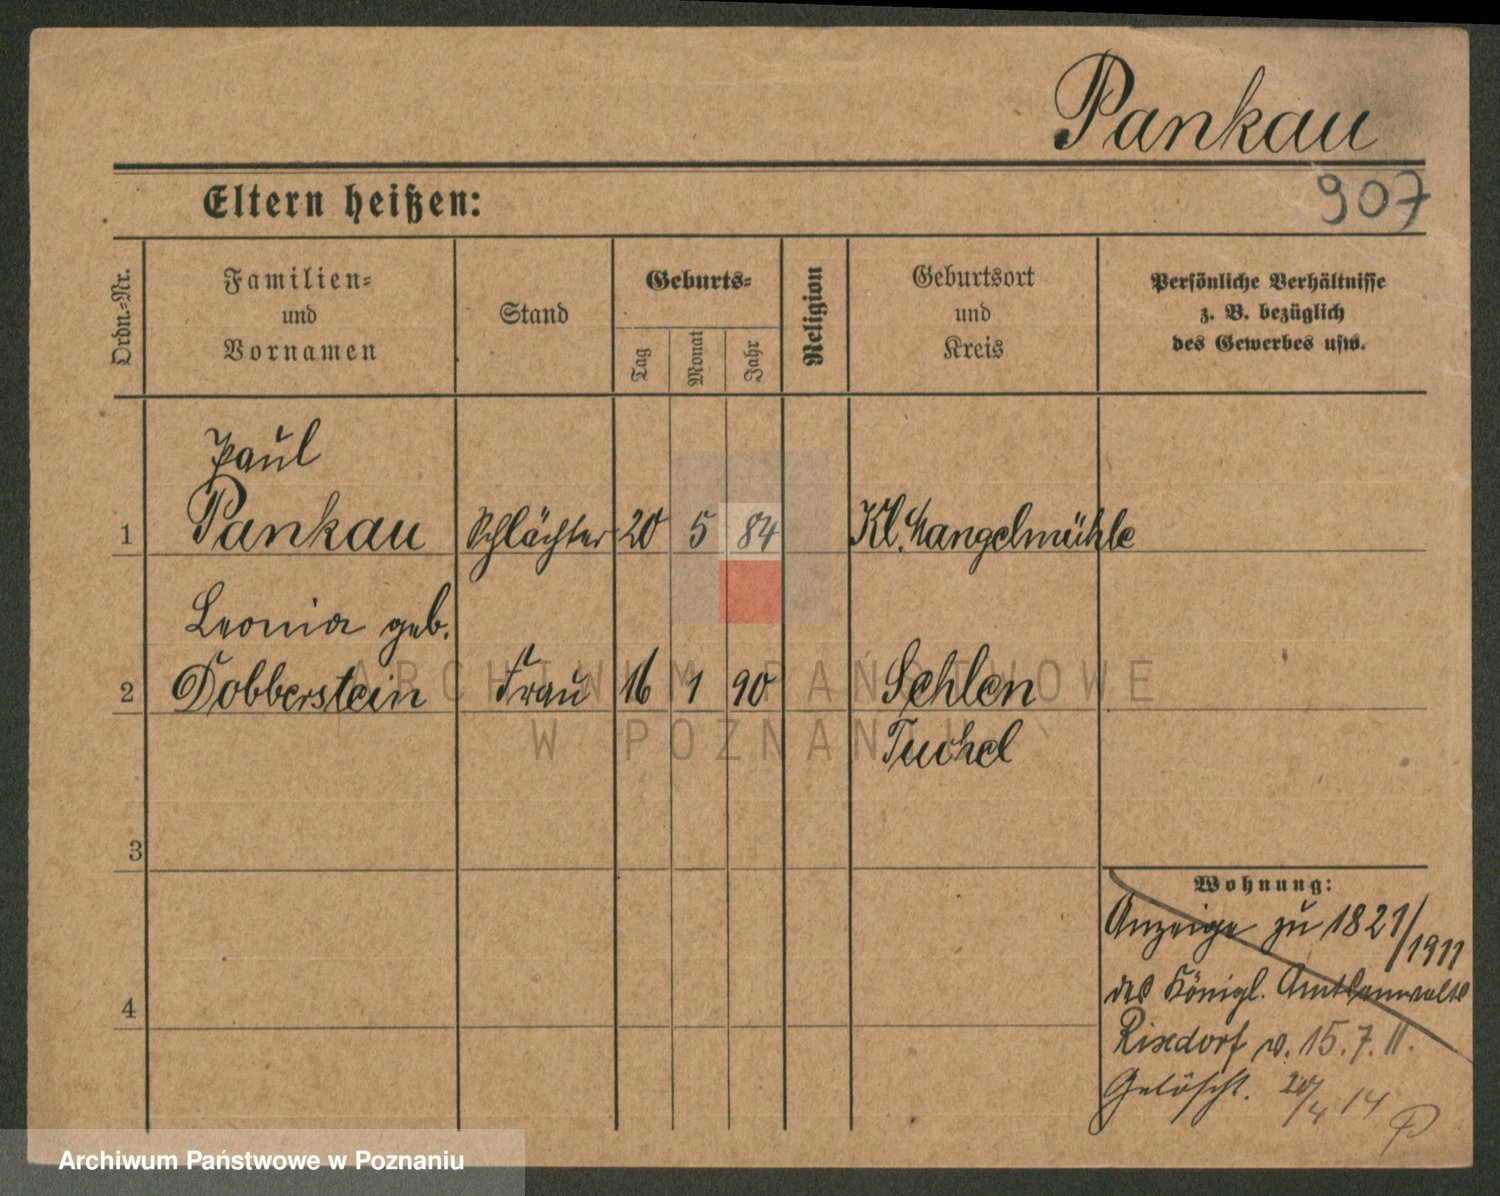 Pankau
907
Eltern heißen:
Ordn.-Nr.
Familien-
und
Vornamen
Stand
Geburts-
Tag
Monat
Jahr
Religion
Geburtsort
und
Kreis
Persönliche Verhältnisse
z. B. bezüglich
des Gewerbes usw.
Paul
1 Pankau Schlächter 20 5 84 Kl. Mangelmühle
Leonia geb.
2 Dobberstein Frau 16 1 90 Sehlen
Tuchel
3
Wohnung:
Anzeige zu 1821/1911
4 des Königl. Amtsanwalts
Rixdorf v. 15.7.11.
Gelöscht. /4 14
ARCHIWUM PAŃSTWOWE
W POZNANIU
Archiwum Państwowe w Poznaniu